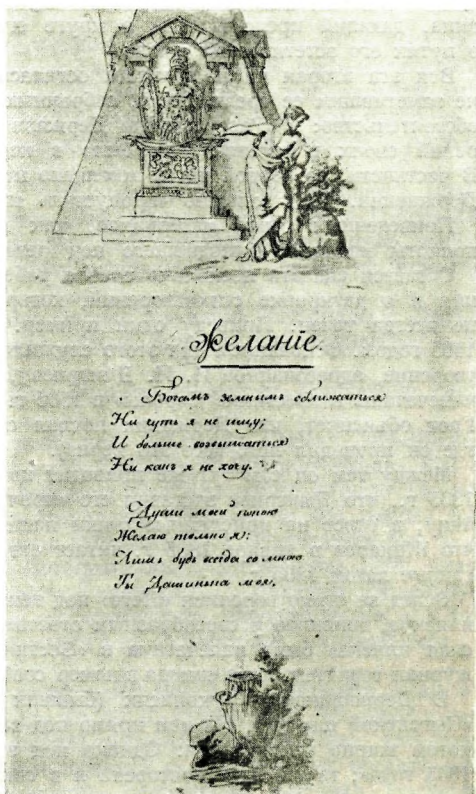 Желанiе.
Богамъ земнымъ сближаться
Ни чуть я не ищу;
И больше возвышаться
Ни какъ я не хочу.
Души моей покою
Желаю только я:
Лишь будь всегда со мною
Ты Дашинька моя.